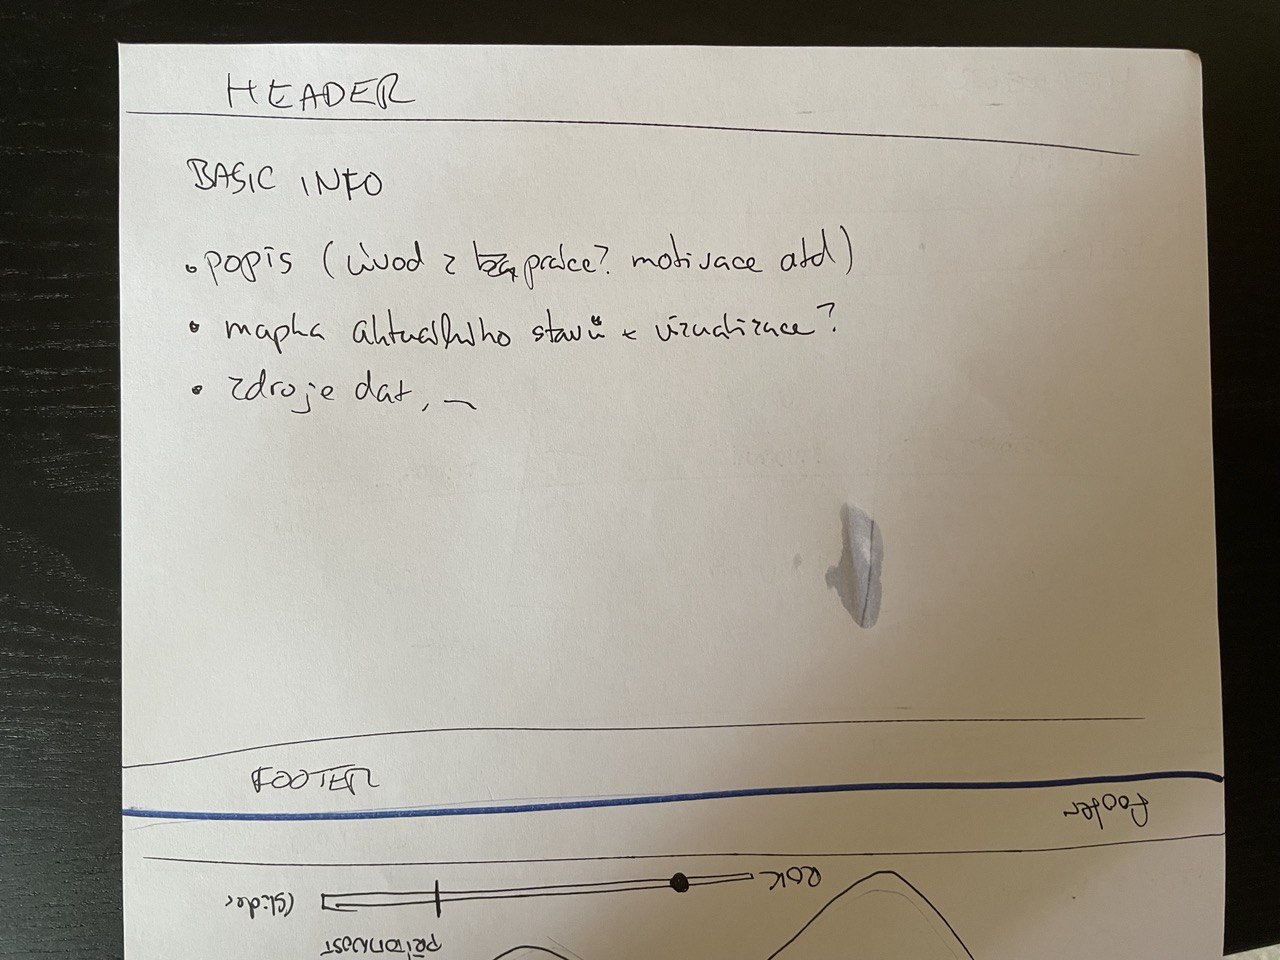 HEADER
BASIC INFO
• popis (úvod z práce? motivace atd)
• mapka aktuálního stavů + vizualizace?
• zdroje dat,
FOOTER
footer
ROK
(slider
PŘÍTOMNOST